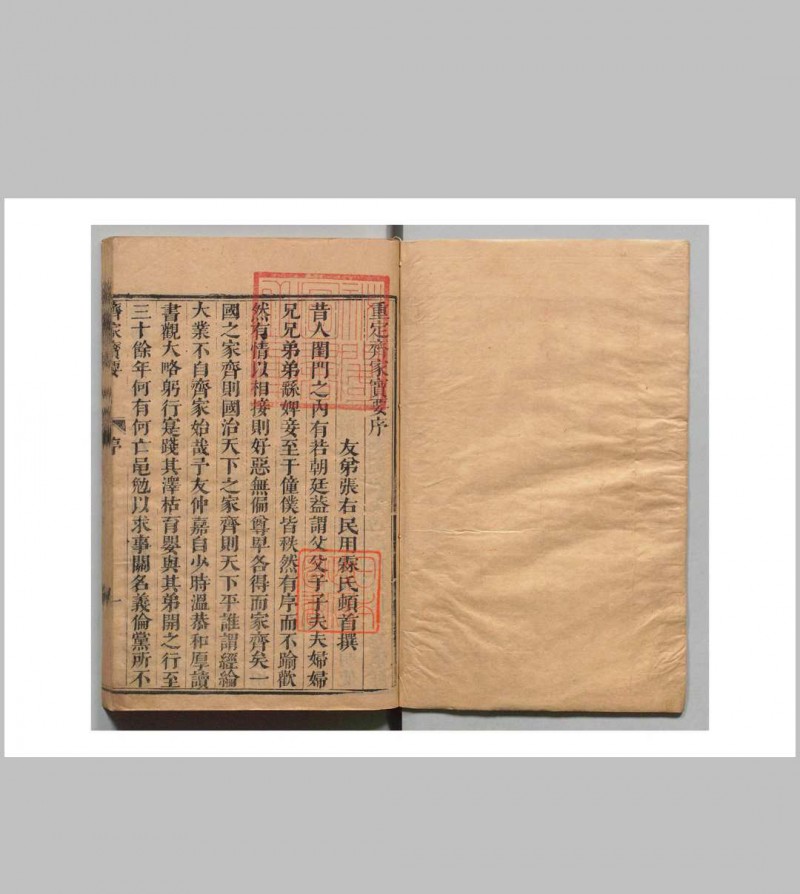 重定齊家寶要序
友弟張右民用霖氏頓首撰
昔人閨門之內有若朝廷益謂父父子子夫夫婦婦
兄兄弟弟繇婢妾至于僮僕皆秩然有序而不踰歡
然有情以相接則好惡無偏尊卑各得而家齊矣一
國之家齊則國治天下之家齊則天下平誰謂經綸
大業不自齊家始哉予友仲嘉自少時溫恭和厚讀
書觀大略躬行寔踐其澤枯育嬰與其弟開之行至
三十餘年何有何亡黽勉以求事關名義倫黨所不
齊家寶要
序
一